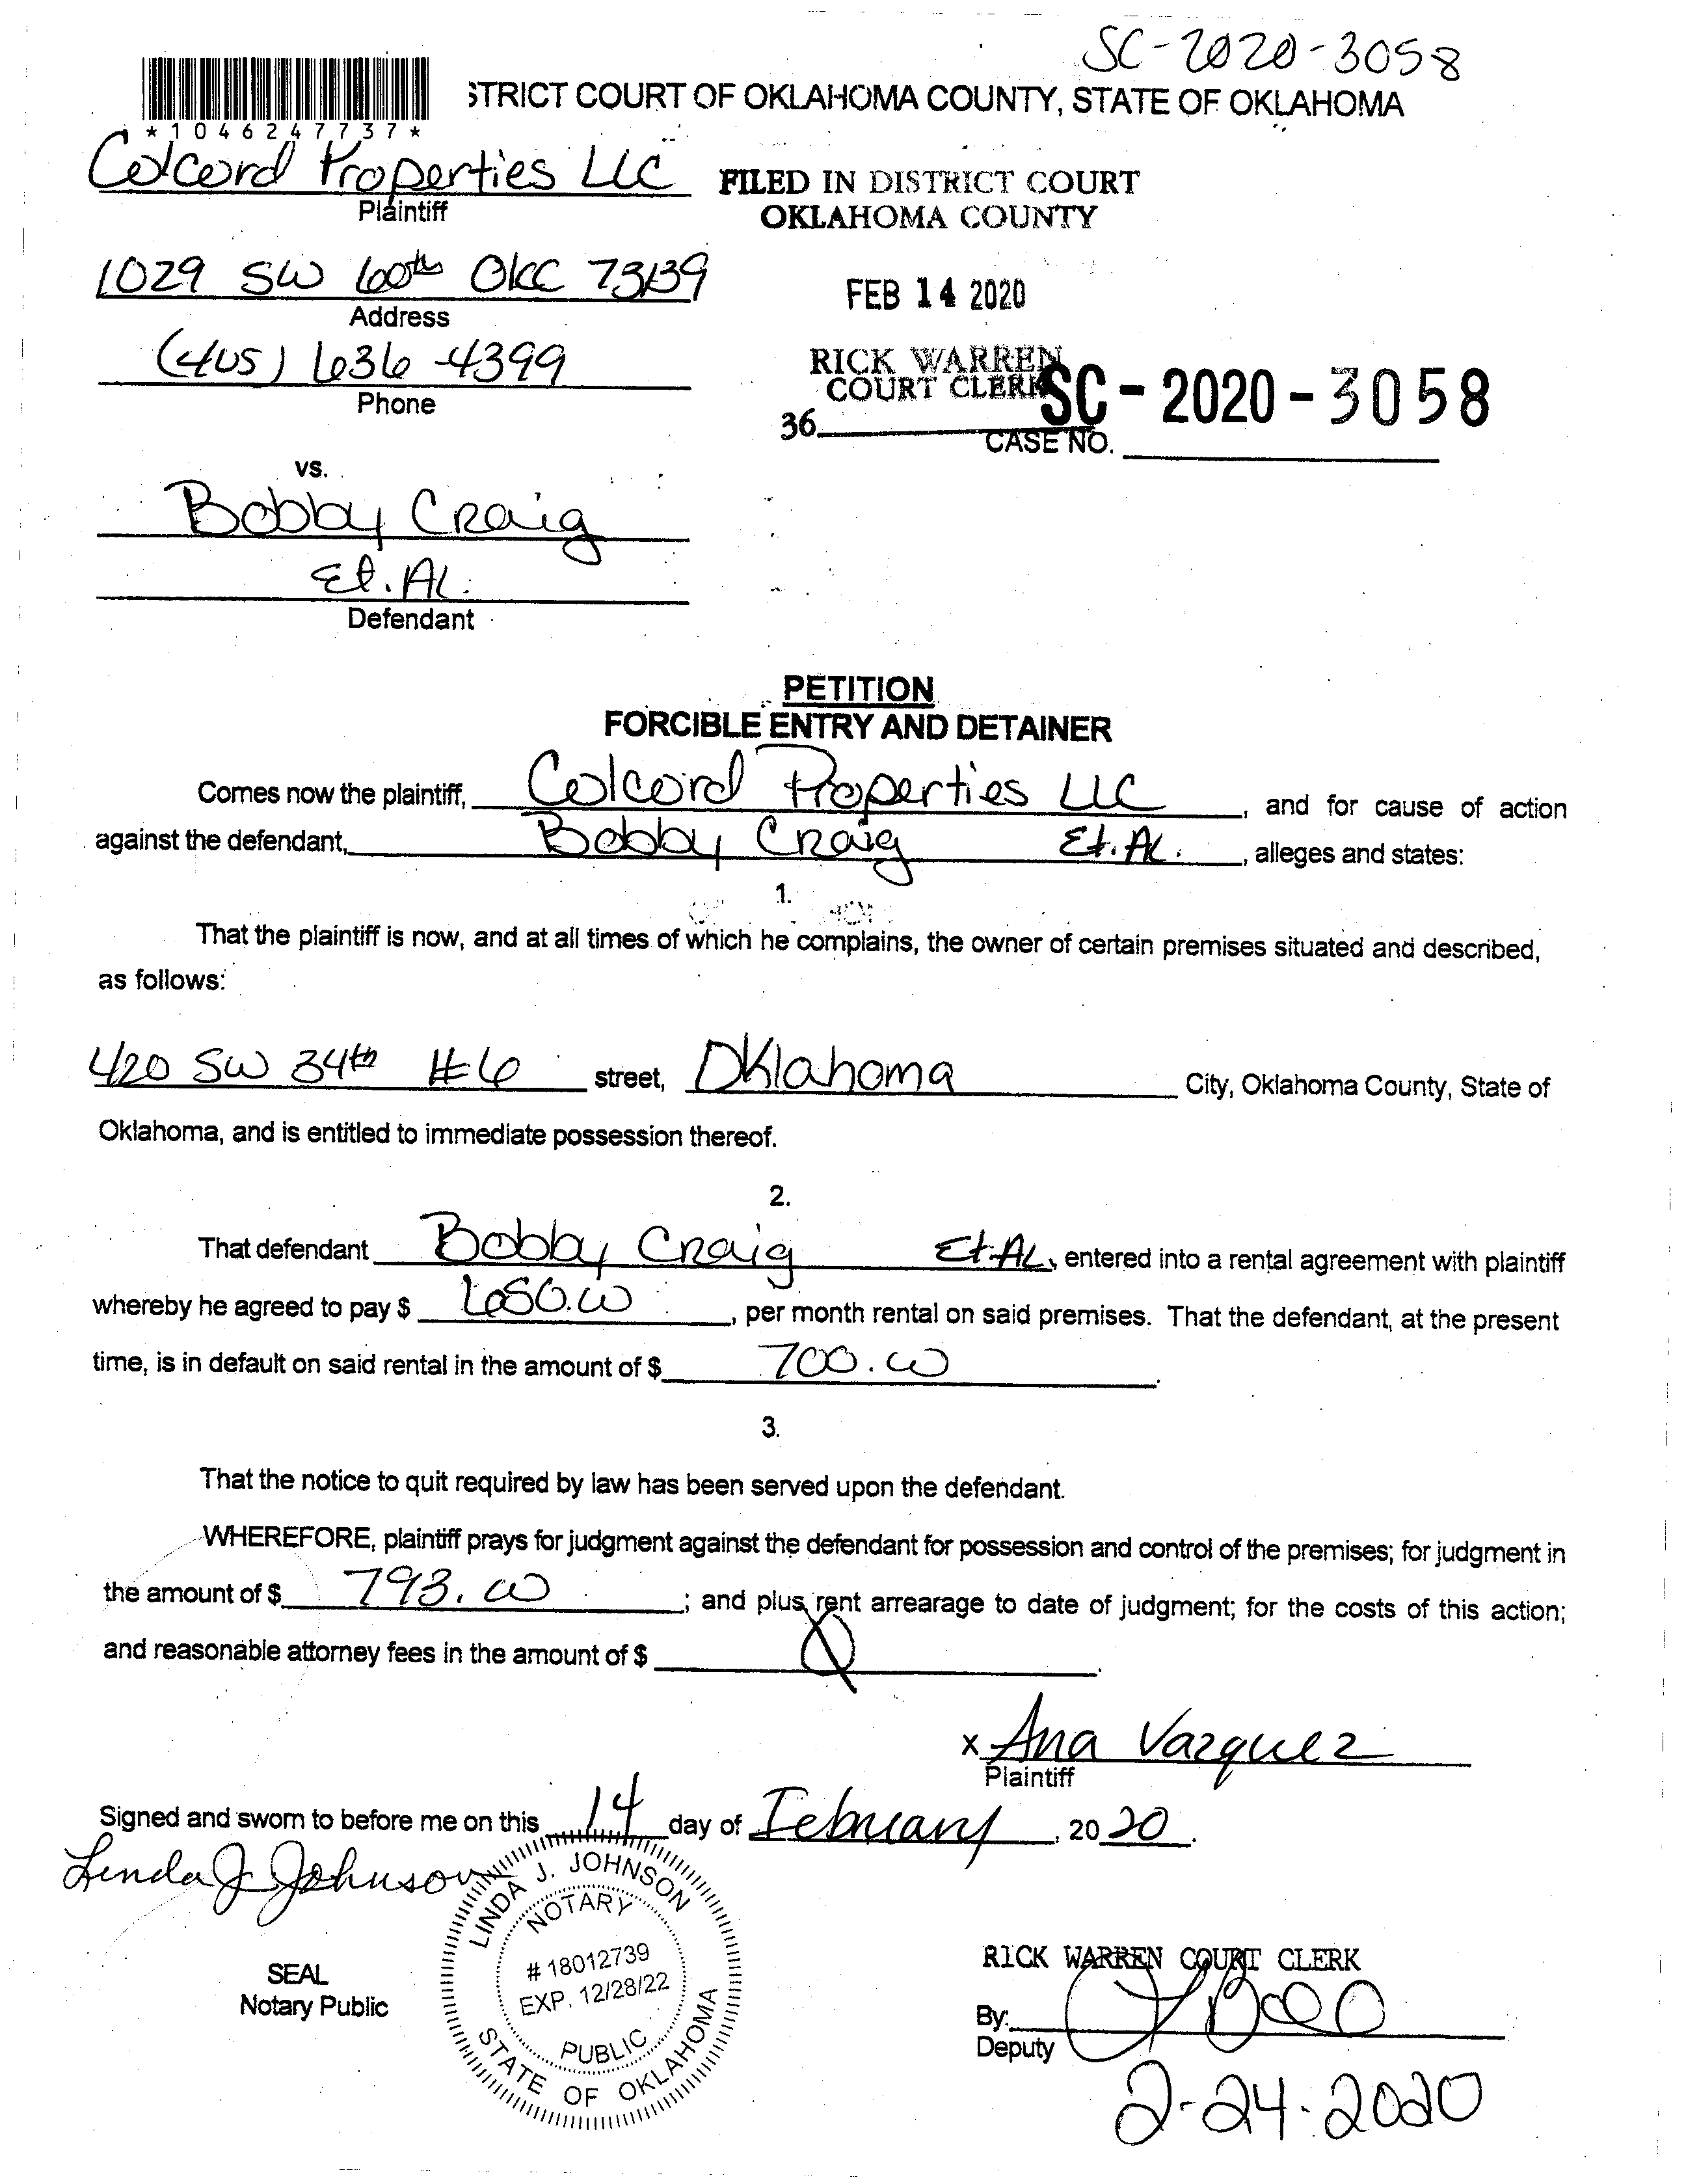 SC-2020-3058
STRICT COURT OF OKLAHOMA COUNTY, STATE OF OKLAHOMA
*1046247737*
Colcord Properties LLC
Plaintiff
FILED IN DISTRICT COURT
OKLAHOMA COUNTY
1029 SW 60th OKC 73139
Address
FEB 14 2020
(405) 636-4399
Phone
RICK WARREN
COURT CLERK
SC-2020-3058
36
CASE NO.
vs.
Bobby Craig
Et. Al.
Defendant
PETITION
FORCIBLE ENTRY AND DETAINER
Comes now the plaintiff, Colcord Properties LLC, and for cause of action
against the defendant, Bobby Craig Et. Al., alleges and states:
1.
That the plaintiff is now, and at all times of which he complains, the owner of certain premises situated and described,
as follows:
420 SW 34th #6 street, Oklahoma City, Oklahoma County, State of
Oklahoma, and is entitled to immediate possession thereof.
2.
That defendant Bobby Craig Et. AL, entered into a rental agreement with plaintiff
whereby he agreed to pay $ 650.00, per month rental on said premises. That the defendant, at the present
time, is in default on said rental in the amount of $ 700.00.
3.
That the notice to quit required by law has been served upon the defendant.
WHEREFORE, plaintiff prays for judgment against the defendant for possession and control of the premises; for judgment in
the amount of $ 793.00; and plus rent arrearage to date of judgment; for the costs of this action;
and reasonable attorney fees in the amount of $ 0.
x Ana Vazquez
Plaintiff
Signed and sworn to before me on this 14 day of February, 2020.
Linda J Johnson
LINDA J. JOHNSON
NOTARY
# 18012739
EXP. 12/28/22
PUBLIC
STATE OF OKLAHOMA
SEAL
Notary Public
RICK WARREN COURT CLERK
By:
Deputy
2-24-2020